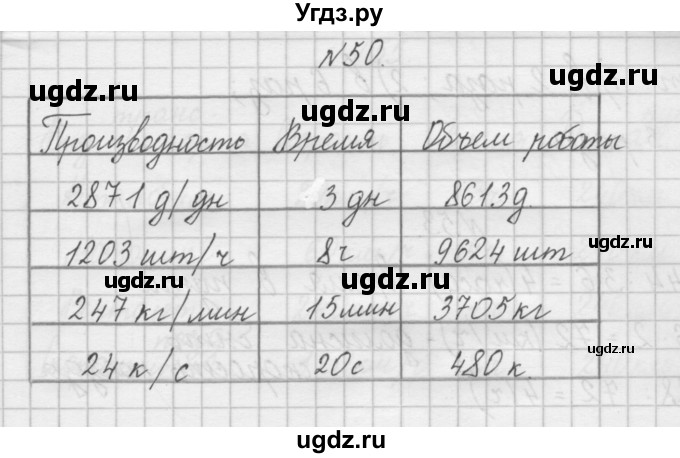 Угдз.ру
N50.
ugdz.ru ugdz.ru
Производность Время Объем работы
2871 д/дн 3 дн 8613д.
ugdz.ru
1203 шт/ч 8ч 9624 шт
ugdz.ru
ugdz.ru ugdz.ru
247 кг/мин 15мин 3705кг
ugdz.ru
24 к/с 20с 480 к.
ugdz.ru
ugdz.ru